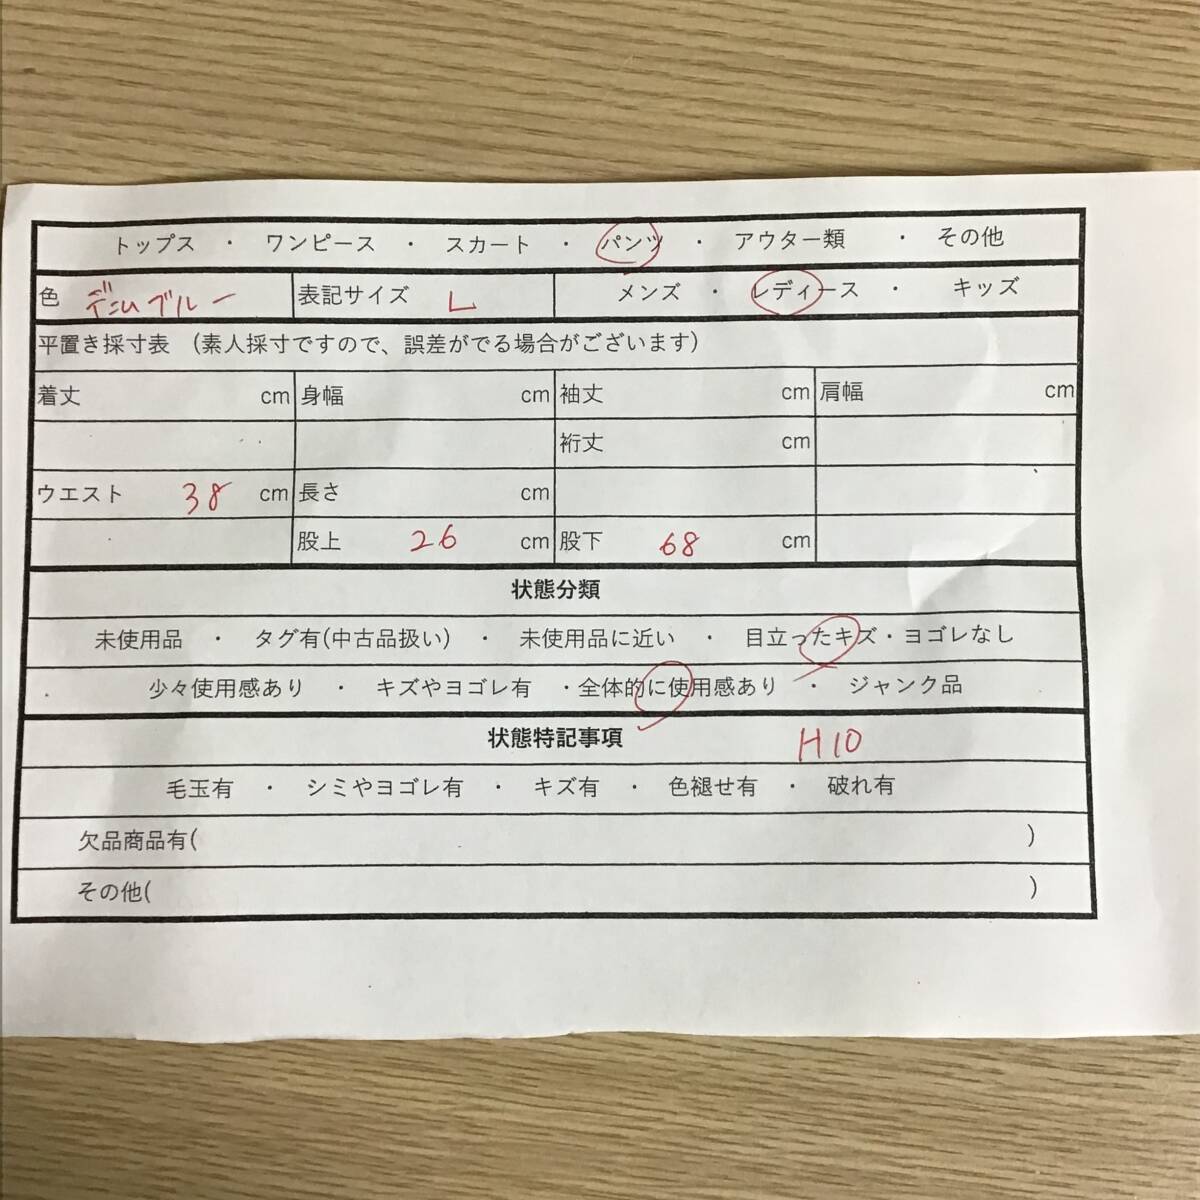 トップス ・ ワンピース ・ スカート ・ パンツ ・ アウター類 ・ その他
色 デニムブルー 表記サイズ L メンズ ・ レディース ・ キッズ
平置き採寸表 (素人採寸ですので、誤差がでる場合がございます)
着丈 cm 身幅 cm 袖丈 cm 肩幅 cm
裄丈 cm
ウエスト 38 cm 長さ cm
股上 26 cm 股下 68 cm
状態分類
未使用品 ・ タグ有(中古品扱い) ・ 未使用品に近い ・ 目立ったキズ・ヨゴレなし
少々使用感あり ・ キズやヨゴレ有 ・全体的に使用感あり ・ ジャンク品
状態特記事項 H10
毛玉有 ・ シミやヨゴレ有 ・ キズ有 ・ 色褪せ有 ・ 破れ有
欠品商品有( )
その他( )